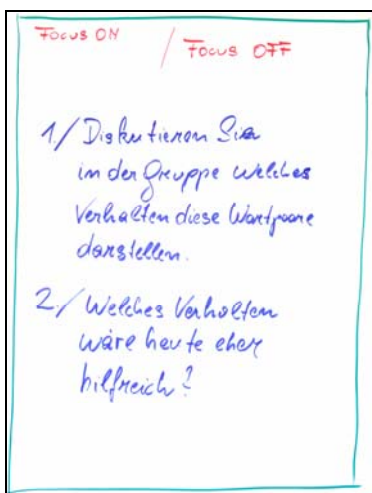 Focus ON / Focus OFF
1/ Diskutieren Sie
in der Gruppe welches
Verhalten diese Wortpaare
darstellen.
2/ Welches Verhalten
wäre heute eher
hilfreich?